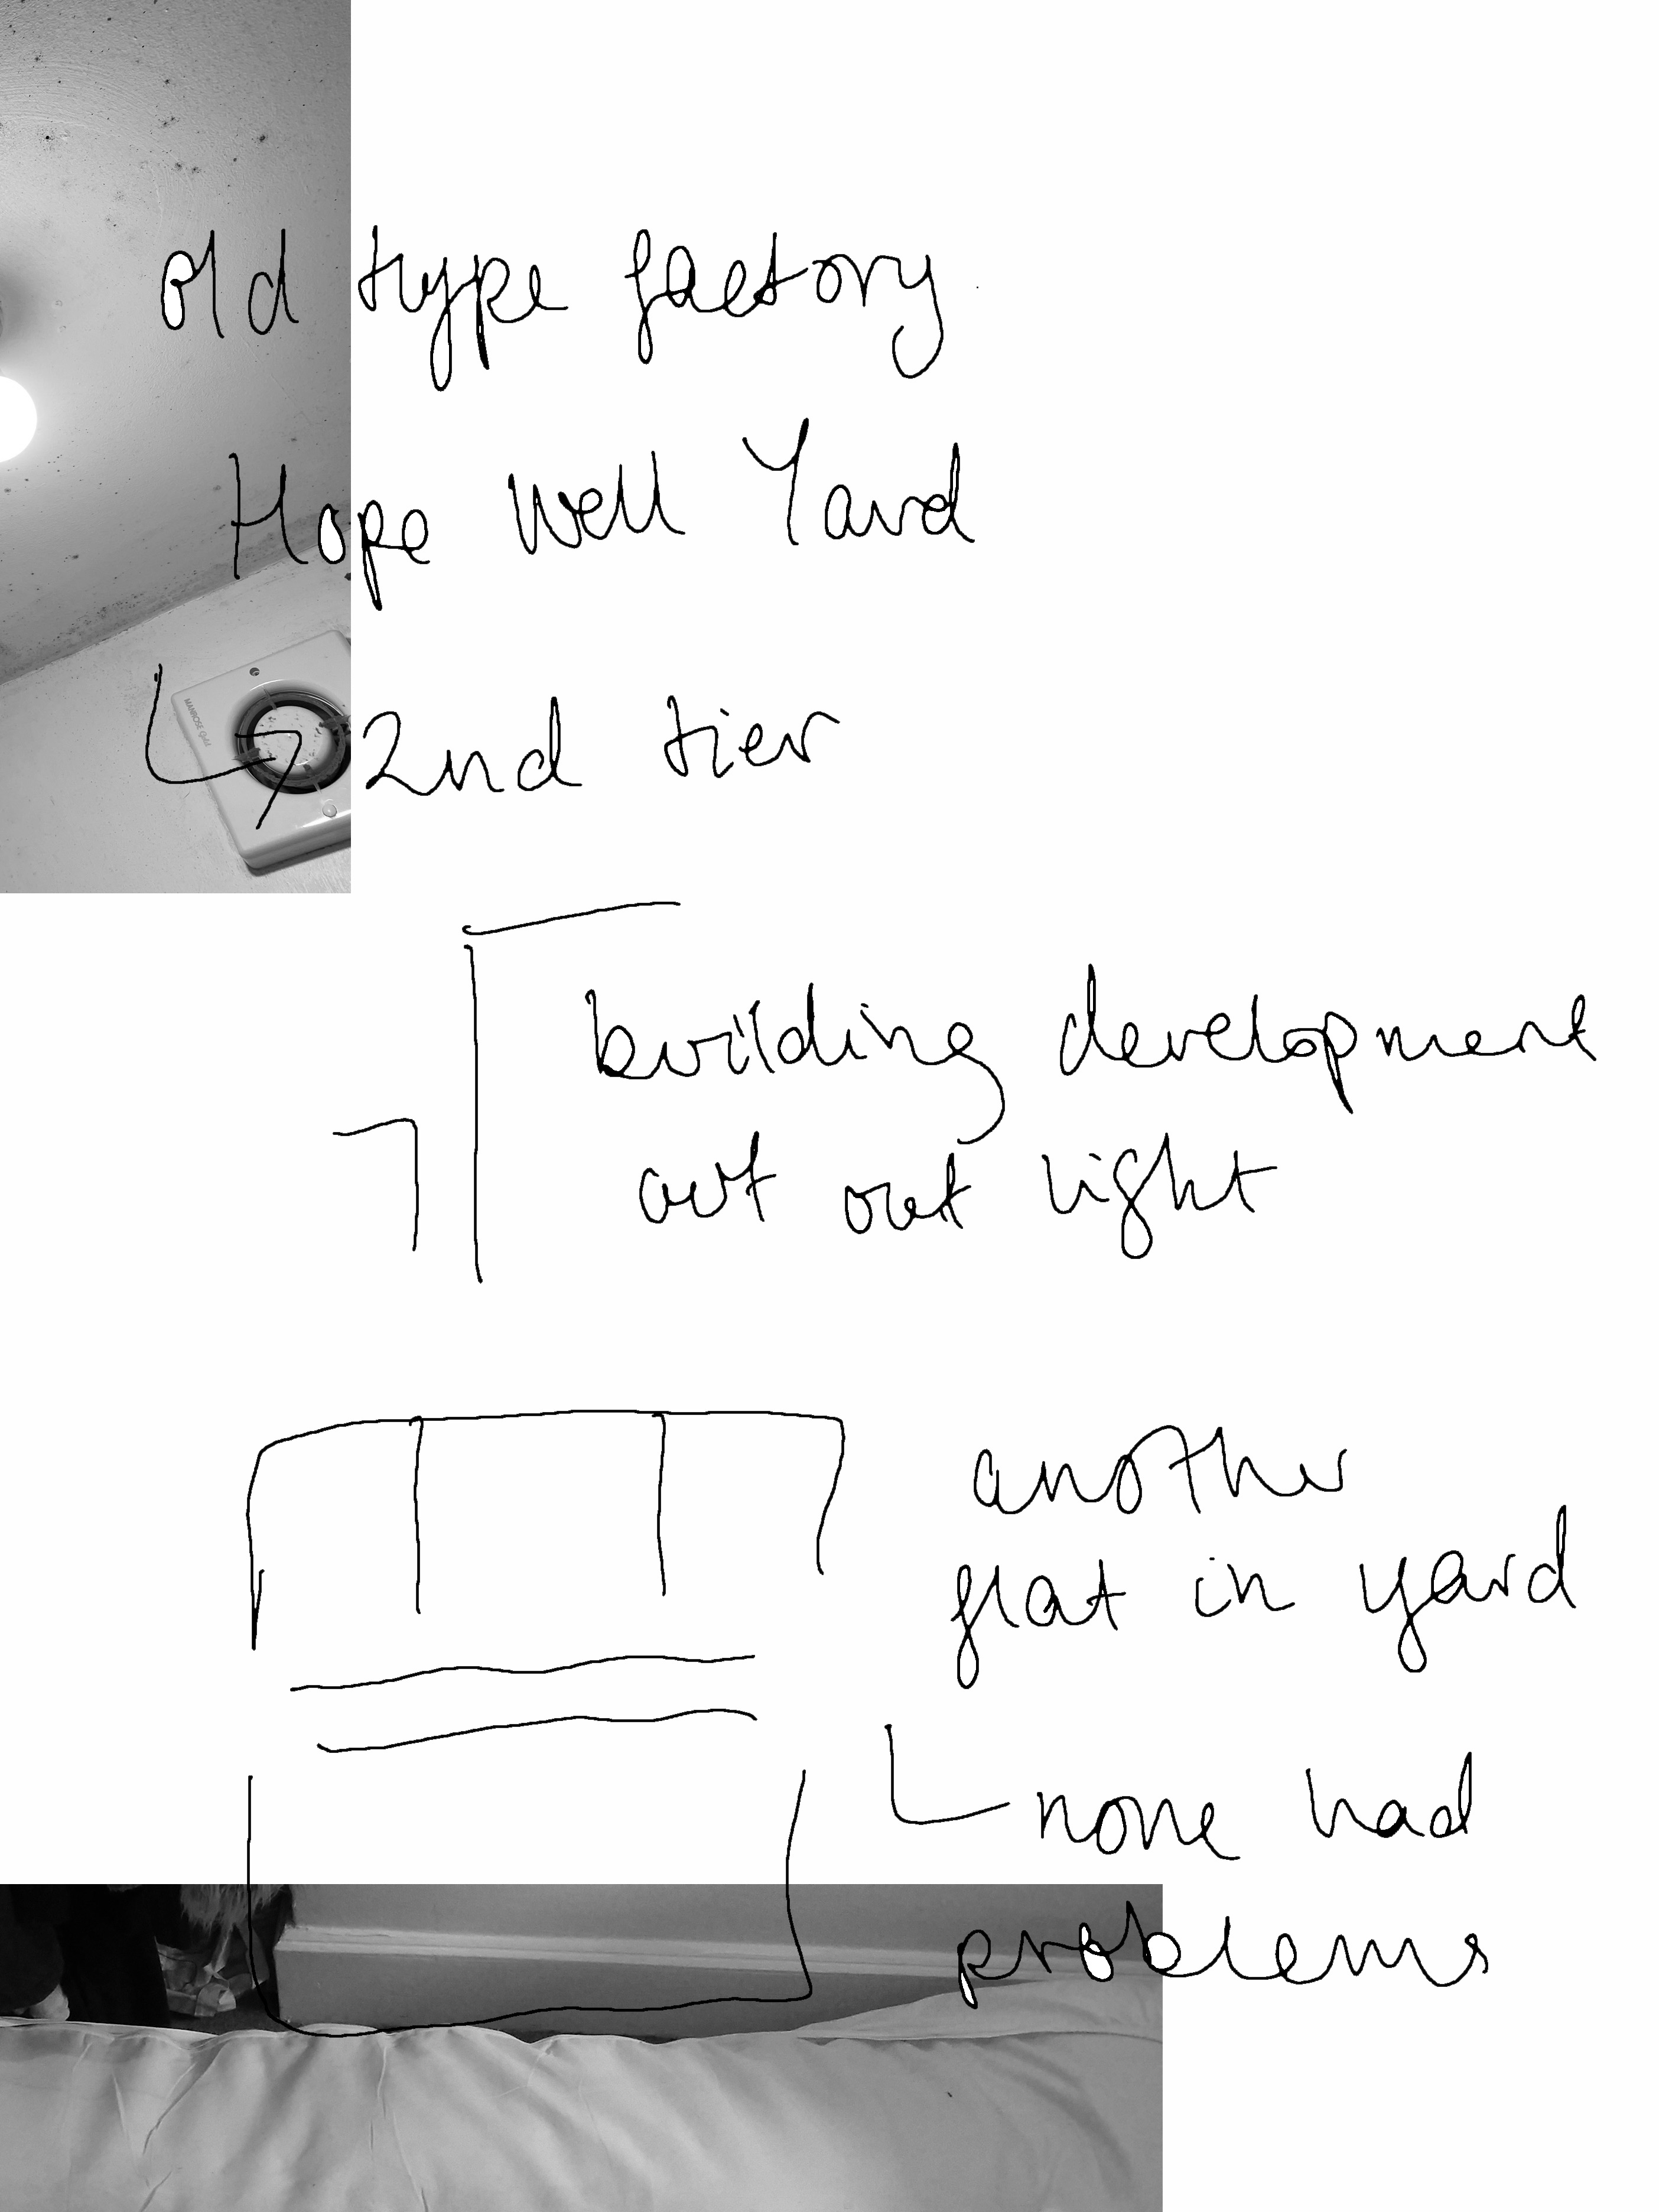 old type factory
Hope Well Yard
MANROSE
2nd tier
building development
cut out light
another
flat in yard
none had
problems